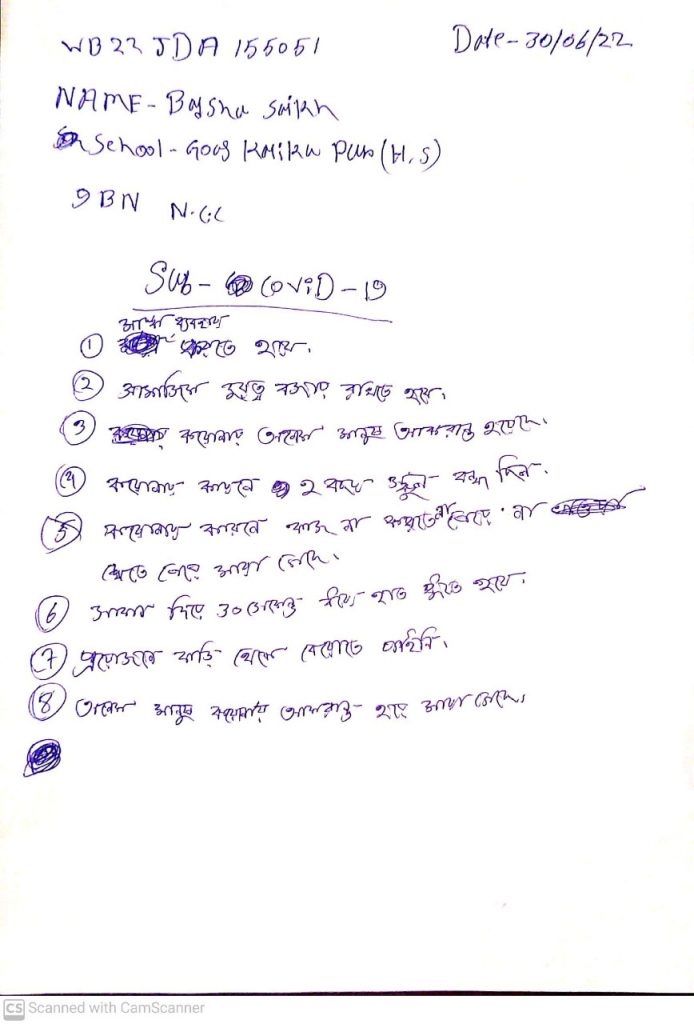 WB22 JDA 155051
Date-30/06/22
NAME- Baysha Saikh
School- Goas Kalika Pur (H.S)
9 BN N.CC
Sub- COVID-19
মাস্ক ব্যবহার
① করতে হবে।
② সামাজিক দুরত্ব বজায় রাখতে হবে।
③ করোনায় অনেক মানুষ আক্রান্ত হয়েছে।
④ করোনার কারনে ২ বছর স্কুল বন্ধ ছিল.
⑤ করোনার কারনে কাজ না করতে পেরে না
খেতে পেয়ে মারা গেছে।
⑥ সাবান দিয়ে 30 সেকেন্ড হাত ধুতে হবে.
⑦ প্রয়োজনে বাড়ি থেকে বেরোতে পারিনি।
⑧ অনেক মানুষ করোনায় আক্রান্ত হয়ে মারা গেছে।
CS Scanned with CamScanner